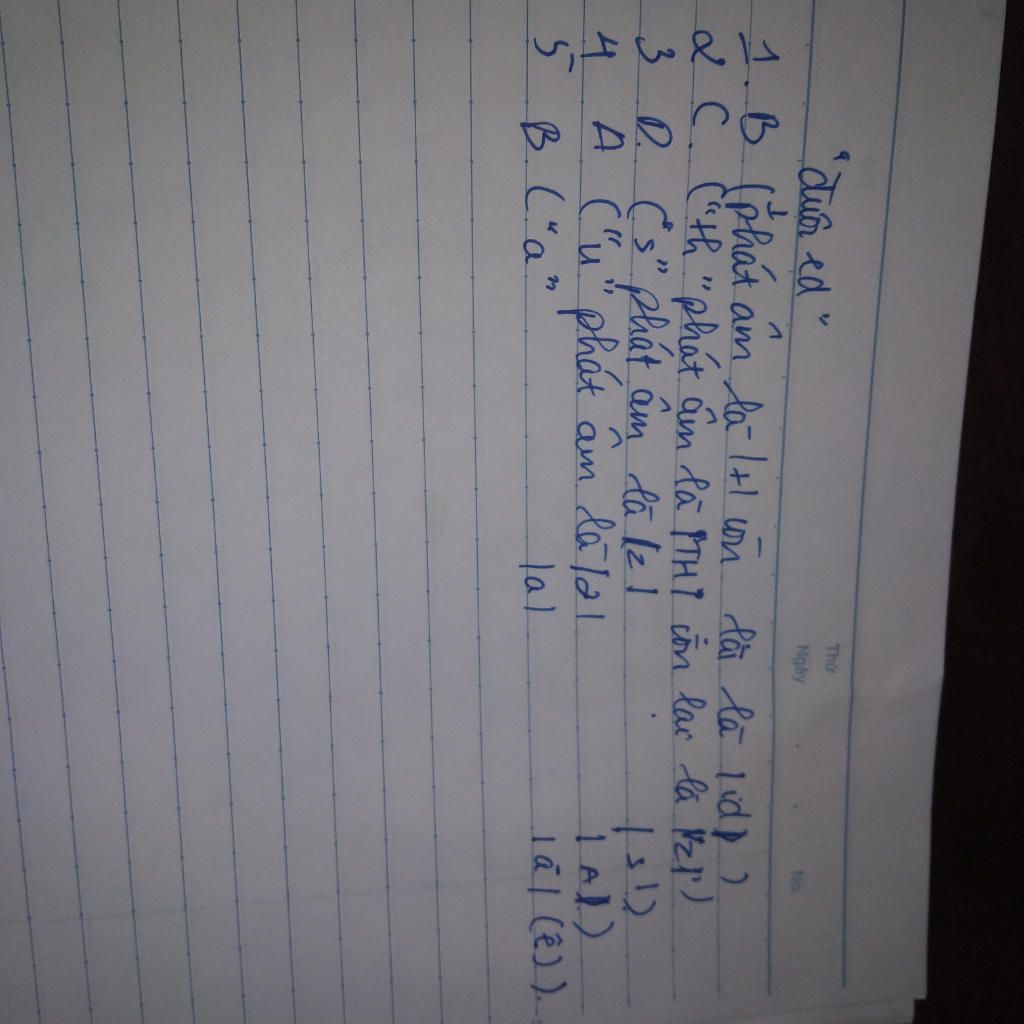 Thứ
Ngày
No.
"đuôi ed"
1. B (phát âm là /t/ còn lại là /id/)
2 C. ("th" phát âm là /TH/ còn lại là /z/)
3 D. ("s" phát âm là /z/ /s/)
4 A ("u" phát âm là /ə/ /ʌ/)
5 B ("a" /a/ /ä/ (ê)).